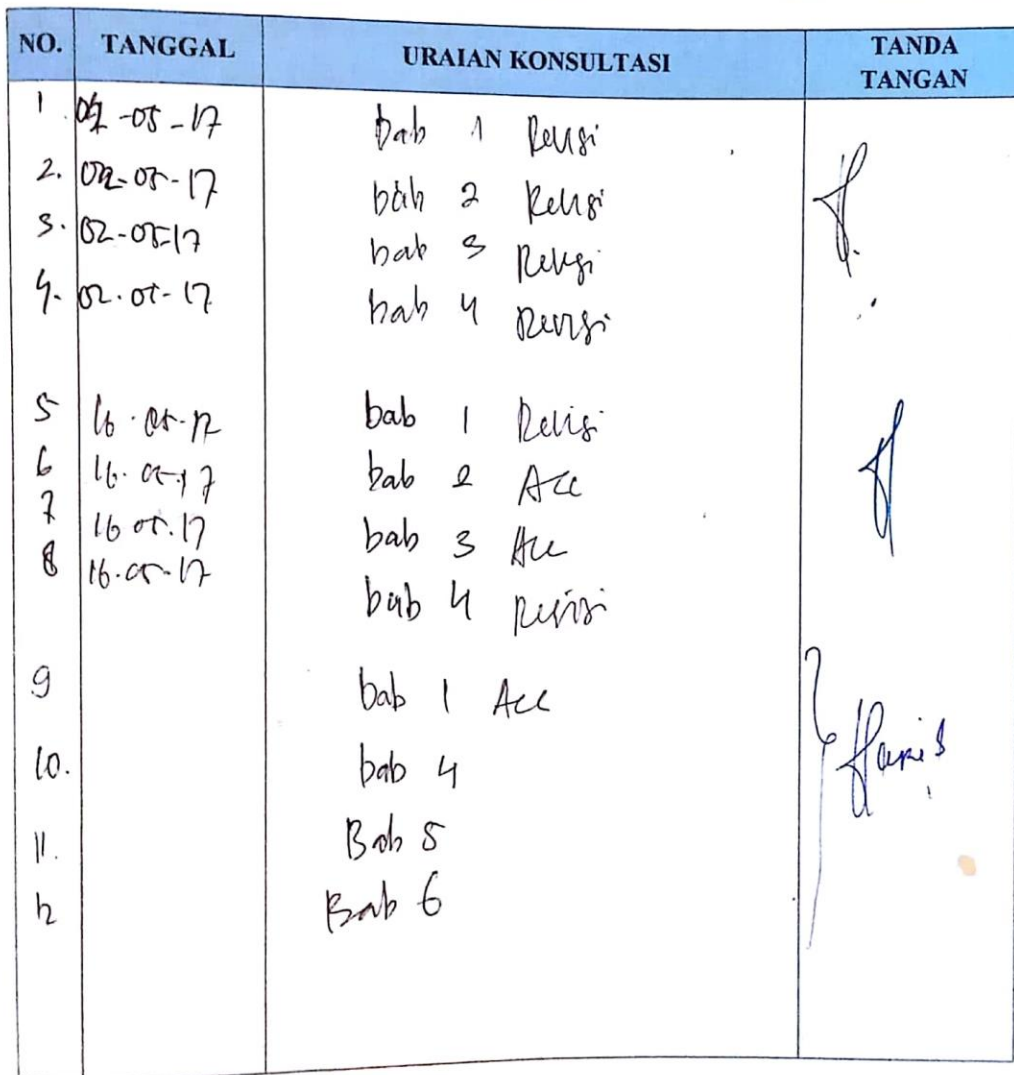 NO. TANGGAL URAIAN KONSULTASI TANDA TANGAN
1. 02-05-17 bab 1 Revisi
2. 02-05-17 bab 2 Revisi
3. 02-05-17 bab 3 Revisi
4. 02-05-17 bab 4 Revisi
5 16-05-17 bab 1 Revisi
6 16-05-17 bab 2 Acc
7 16-05-17 bab 3 Acc
8 16-05-17 bab 4 Revisi
9 bab 1 Acc
10. bab 4
11. Bab 5
12 Bab 6